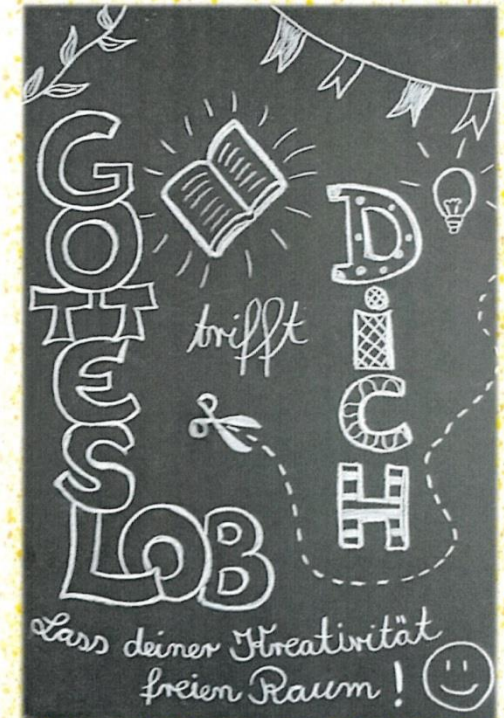 GOTTES
LOB
trifft
DiCH
Lass deiner Kreativität
freien Raum!